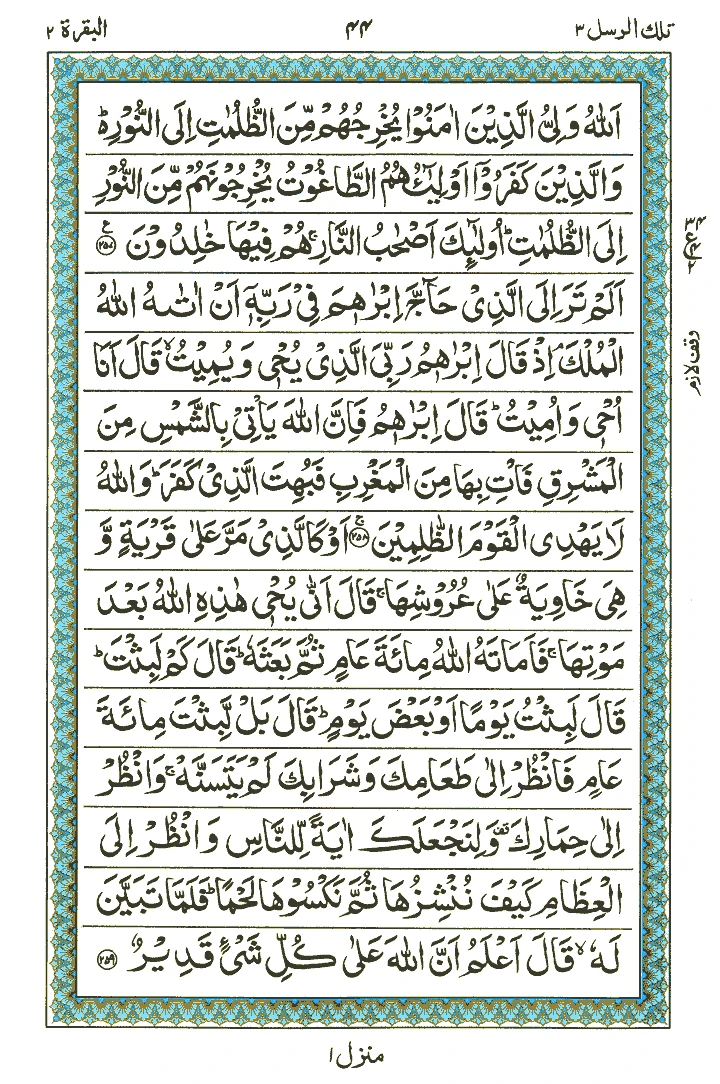 تلك الرسل ٣ ٤٤ البقرة ٢
اَللّٰهُ وَلِىُّ الَّذِيْنَ اٰمَنُوْا يُخْرِجُهُمْ مِّنَ الظُّلُمٰتِ اِلَى النُّوْرِ ؕ
وَالَّذِيْنَ كَفَرُوْۤا اَوْلِيٰٓـُٔهُمُ الطَّاغُوْتُ يُخْرِجُوْنَهُمْ مِّنَ النُّوْرِ
اِلَى الظُّلُمٰتِ ؕ اُولٰٓئِكَ اَصْحٰبُ النَّارِ ۚ هُمْ فِيْهَا خٰلِدُوْنَ ﴿٢٥٧﴾
اَلَمْ تَرَ اِلَى الَّذِىْ حَآجَّ اِبْرٰهٖمَ فِىْ رَبِّهٖۤ اَنْ اٰتٰىهُ اللّٰهُ
الْمُلْكَ ۘ اِذْ قَالَ اِبْرٰهٖمُ رَبِّىَ الَّذِىْ يُحْىٖ وَيُمِيْتُ ۙ قَالَ اَنَا
اُحْىٖ وَاُمِيْتُ ؕ قَالَ اِبْرٰهٖمُ فَاِنَّ اللّٰهَ يَاْتِىْ بِالشَّمْسِ مِنَ
الْمَشْرِقِ فَاْتِ بِهَا مِنَ الْمَغْرِبِ فَبُهِتَ الَّذِىْ كَفَرَ ؕ وَاللّٰهُ
لَا يَهْدِى الْقَوْمَ الظّٰلِمِيْنَ ۚ ﴿٢٥٨﴾ اَوْ كَالَّذِىْ مَرَّ عَلٰى قَرْيَةٍ وَّ
هِىَ خَاوِيَةٌ عَلٰى عُرُوْشِهَا ۚ قَالَ اَنّٰى يُحْىٖ هٰذِهِ اللّٰهُ بَعْدَ
مَوْتِهَا ۚ فَاَمَاتَهُ اللّٰهُ مِائَةَ عَامٍ ثُمَّ بَعَثَهٗ ؕ قَالَ كَمْ لَبِثْتَ ؕ
قَالَ لَبِثْتُ يَوْمًا اَوْ بَعْضَ يَوْمٍ ؕ قَالَ بَلْ لَّبِثْتَ مِائَةَ
عَامٍ فَانْظُرْ اِلٰى طَعَامِكَ وَشَرَابِكَ لَمْ يَتَسَنَّهْ ۚ وَانْظُرْ
اِلٰى حِمَارِكَ وَلِنَجْعَلَكَ اٰيَةً لِّلنَّاسِ وَانْظُرْ اِلَى
الْعِظَامِ كَيْفَ نُنْشِزُهَا ثُمَّ نَكْسُوْهَا لَحْمًا ؕ فَلَمَّا تَبَيَّنَ
لَهٗ ۙ قَالَ اَعْلَمُ اَنَّ اللّٰهَ عَلٰى كُلِّ شَىْءٍ قَدِيْرٌ ﴿٢٥٩﴾
وقف لازم
منزل ١